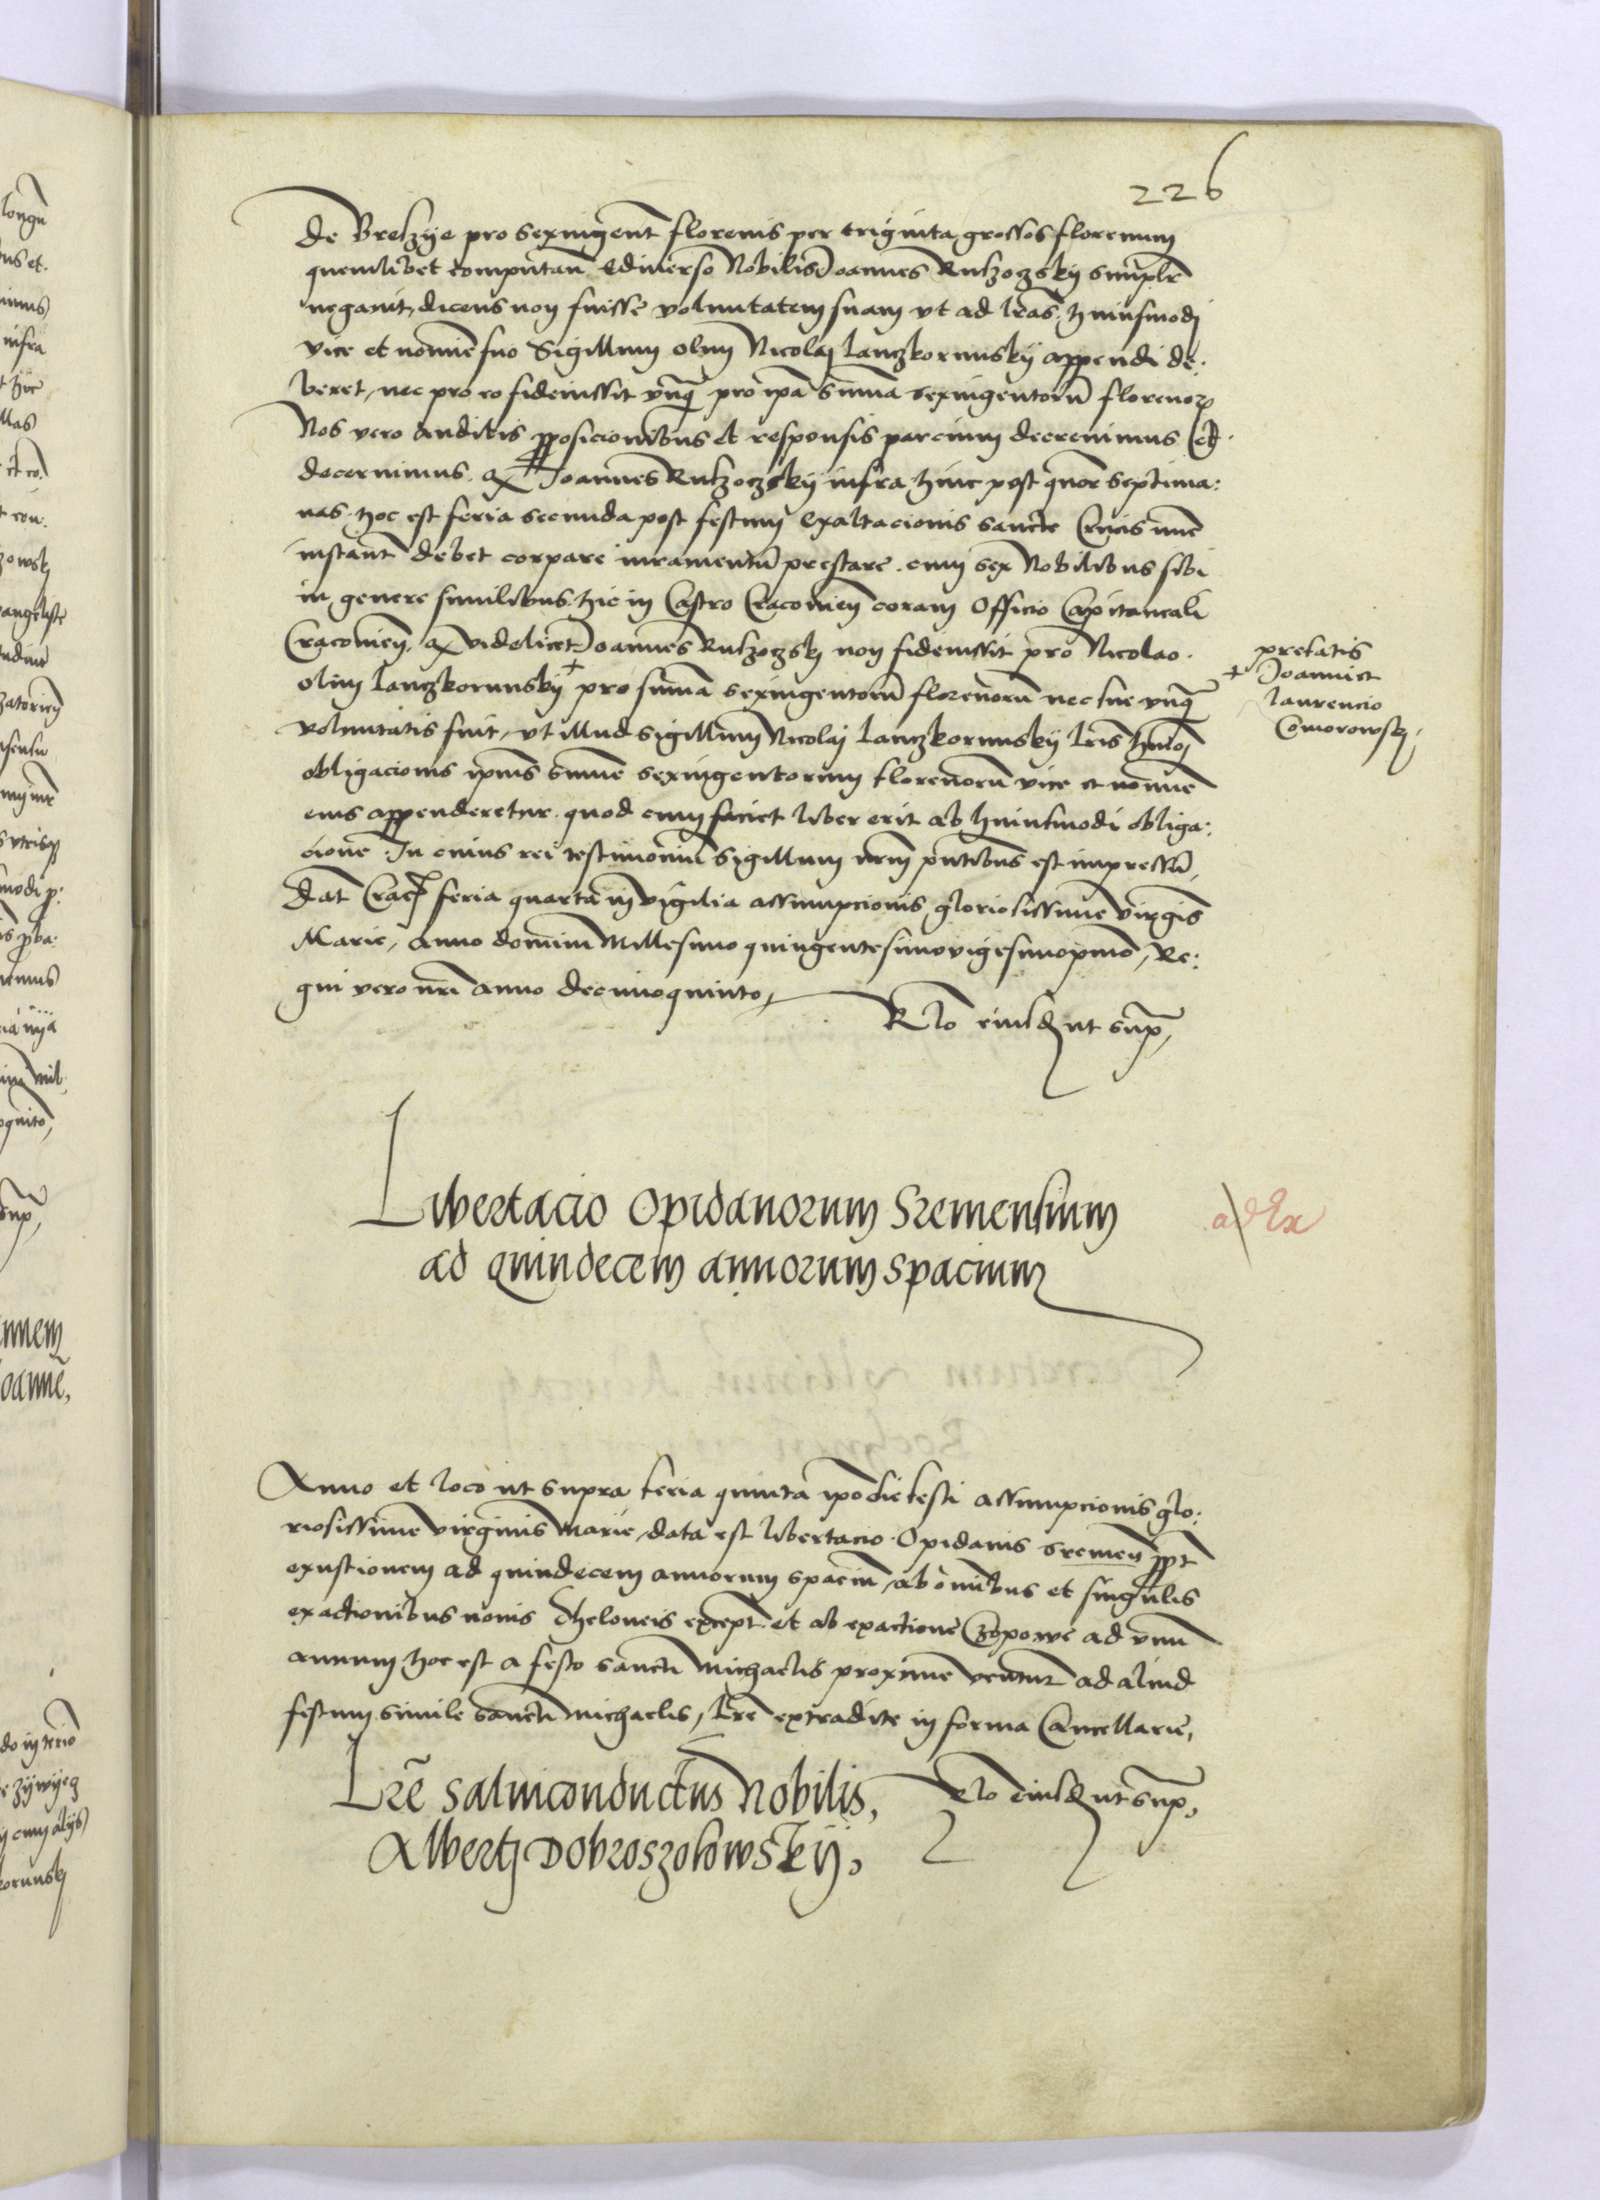 226
de Brelzije pro sexingent florenis per triginta grossos florenum
quemlibet computan̄ Ediuerso Nobilis Joannes Rulzoczskij simplr̄
negauit, dicens non fuisse voluntatem suam vt ad lr̄as huiusmodj
vice et nomīe suo Sigillum olim Nicolaj Lanczkorunskij appendi de:
beret, nec pro eo fideiussit vnq̄ pro ip̄a sum̄a sexingentorū florenoꝝ
Nos vero auditis p̄posicionibus et responsis parcium decreuimus Et
decernimus. q Joannes Rulzoczskij infra hinc post quor̄ septima:
nas. hoc est feria secunda post festum Exaltacionis sancte Crucis nūc
instant̄ debet corpare iuramentū prestare. cum sex Nobilibus sibi
in genere similibus, hic in Castro Cracouien̄ coram Officio Capitaneali
Cracouien̄, q videlicet Joannes Rulzoczskj non fideiussit pro Nicolao
olim Lanczkorunskij + pro sum̄a sexingentorū florenorū nec sue vnq̄
voluntatis fuit, vt illud sigillum Nicolaj Lanczkorunskij lr̄is hmōj
obligacionis ip̄ius sum̄e sexingentorum florenorū vice et nomīe
eius appenderetur. quod cum faciet liber erit ab huiusmodi obliga:
cione. In cuius rei testimoniū sigillum nr̄m pn̄tibus est impressū,
dat̄ Crac̄ feria quarta in vigilia assumpcionis gloriosissime virgīs
Marie, Anno domini Millesimo quingentesimovigesimoprimo, Re:
gni vero nr̄i anno decimoquinto,
Rlo eiusd ut sup̄,
+ prefatis
Joanni et
Laurencio
Comorowskj,
Libertacio Opidanorum Sremensium
ad quindecem annorum spacium
ad Ex
Anno et loco ut supra feria quinta ip̄o die festi assumpcionis glo:
riosissime virginis Marie, data est libertacio Opidanis Sremen̄ p̄pt̄
exustionem ad quindecem annorum spaciū, ab om̄ibus et singulis
exactionibus nouis theloneis except̄. et ab exactione Czopowe ad vnū
annum hoc est a festo sancti Michaelis proxime ventur̄ ad aliud
festum simile sancti Michaelis, Lr̄e extradite in forma Cancellarie,
Rlo eiusd ut sup̄,
Lr̄e saluiconductus Nobilis,
Albertj Dobroszolowskij.